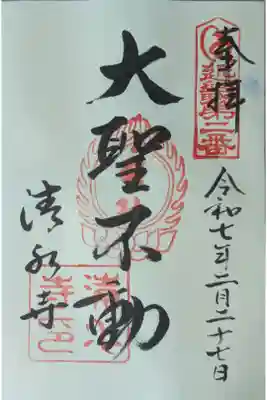 奉拝
第二番
令和七年二月二十七日
大聖不動
清水寺
清水
寺印